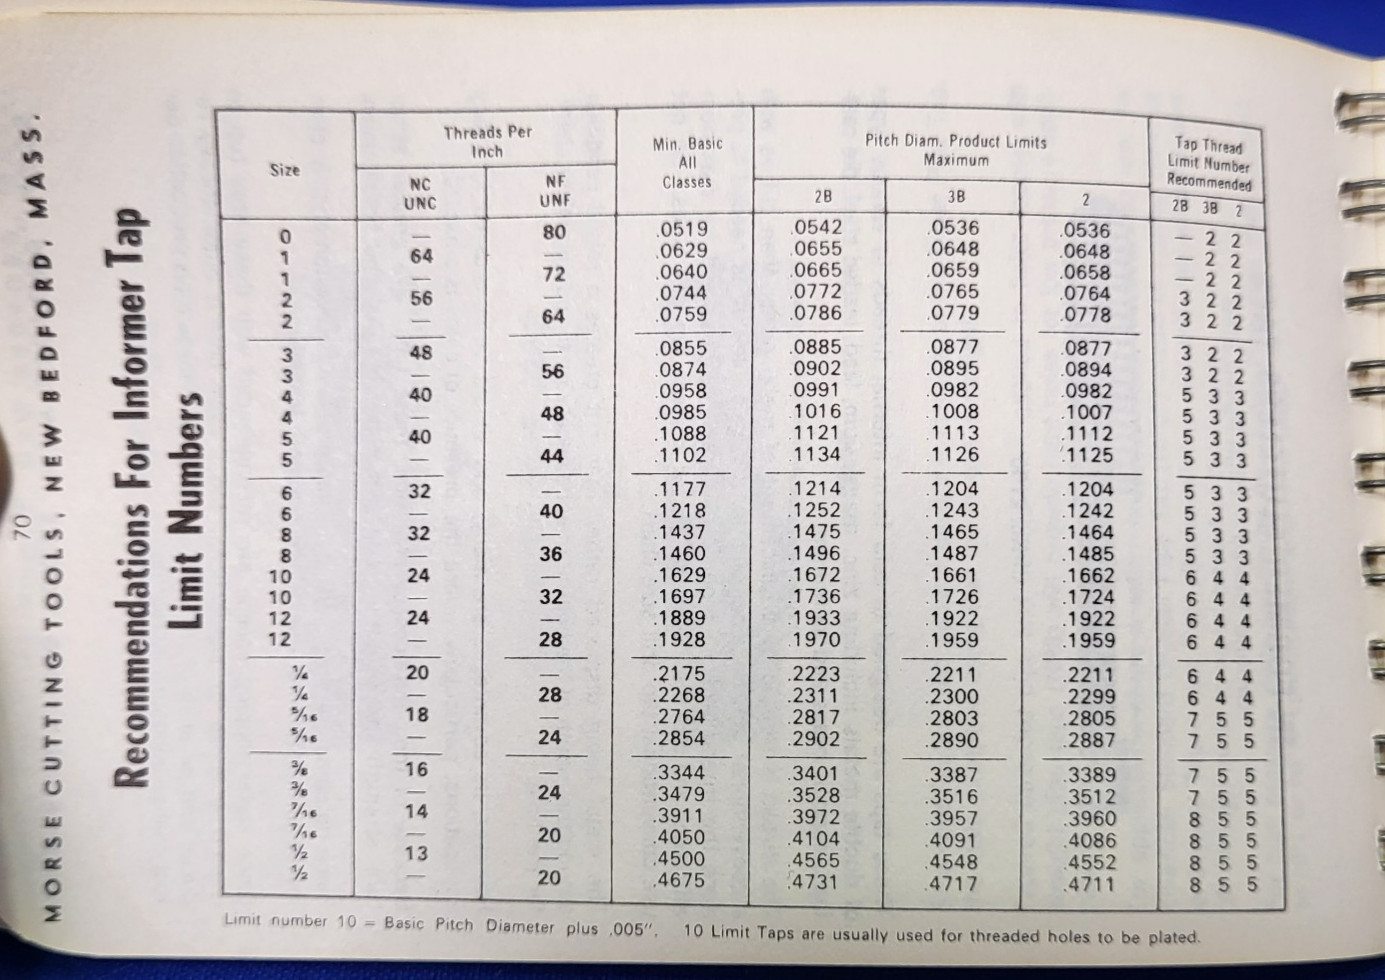 70
MORSE CUTTING TOOLS, NEW BEDFORD, MASS.
Recommendations For Informer Tap
Limit Numbers
Size Threads Per Inch Min. Basic All Classes Pitch Diam. Product Limits Maximum Tap Thread Limit Number Recommended
NC UNC NF UNF 2B 3B 2 2B 3B 2
0 — 80 .0519 .0542 .0536 .0536 — 2 2
1 64 — .0629 .0655 .0648 .0648 — 2 2
1 — 72 .0640 .0665 .0659 .0658 — 2 2
2 56 — .0744 .0772 .0765 .0764 3 2 2
2 — 64 .0759 .0786 .0779 .0778 3 2 2
3 48 — .0855 .0885 .0877 .0877 3 2 2
3 — 56 .0874 .0902 .0895 .0894 3 2 2
4 40 — .0958 .0991 .0982 .0982 5 3 3
4 — 48 .0985 .1016 .1008 .1007 5 3 3
5 40 — .1088 .1121 .1113 .1112 5 3 3
5 — 44 .1102 .1134 .1126 .1125 5 3 3
6 32 — .1177 .1214 .1204 .1204 5 3 3
6 — 40 .1218 .1252 .1243 .1242 5 3 3
8 32 — .1437 .1475 .1465 .1464 5 3 3
8 — 36 .1460 .1496 .1487 .1485 5 3 3
10 24 — .1629 .1672 .1661 .1662 6 4 4
10 — 32 .1697 .1736 .1726 .1724 6 4 4
12 24 — .1889 .1933 .1922 .1922 6 4 4
12 — 28 .1928 .1970 .1959 .1959 6 4 4
¼ 20 — .2175 .2223 .2211 .2211 6 4 4
¼ — 28 .2268 .2311 .2300 .2299 6 4 4
5/16 18 — .2764 .2817 .2803 .2805 7 5 5
5/16 — 24 .2854 .2902 .2890 .2887 7 5 5
⅜ 16 — .3344 .3401 .3387 .3389 7 5 5
⅜ — 24 .3479 .3528 .3516 .3512 7 5 5
7/16 14 — .3911 .3972 .3957 .3960 8 5 5
7/16 — 20 .4050 .4104 .4091 .4086 8 5 5
½ 13 — .4500 .4565 .4548 .4552 8 5 5
½ — 20 .4675 .4731 .4717 .4711 8 5 5
Limit number 10 = Basic Pitch Diameter plus .005". 10 Limit Taps are usually used for threaded holes to be plated.